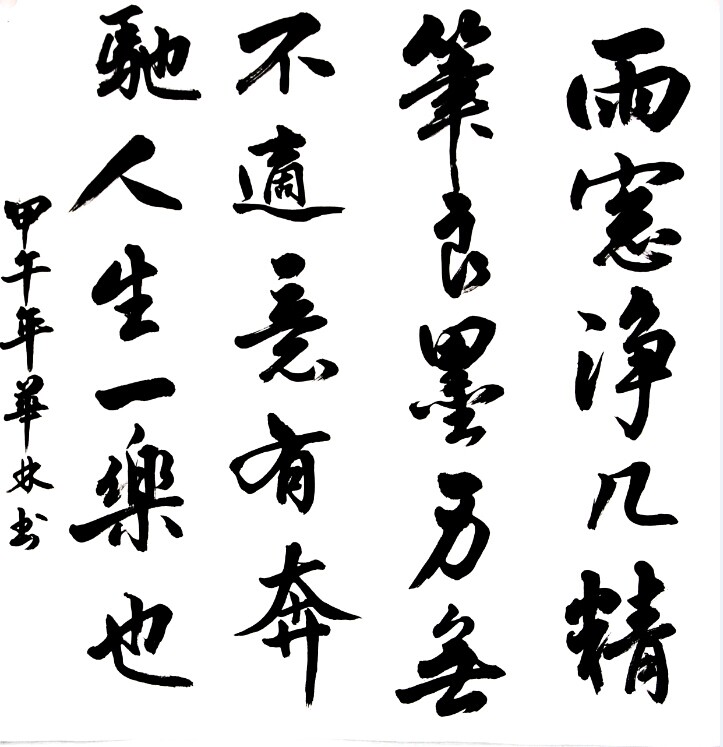 雨窓淨几精
筆良墨方無
不適意有奔
馳人生一樂也
甲午年華林书